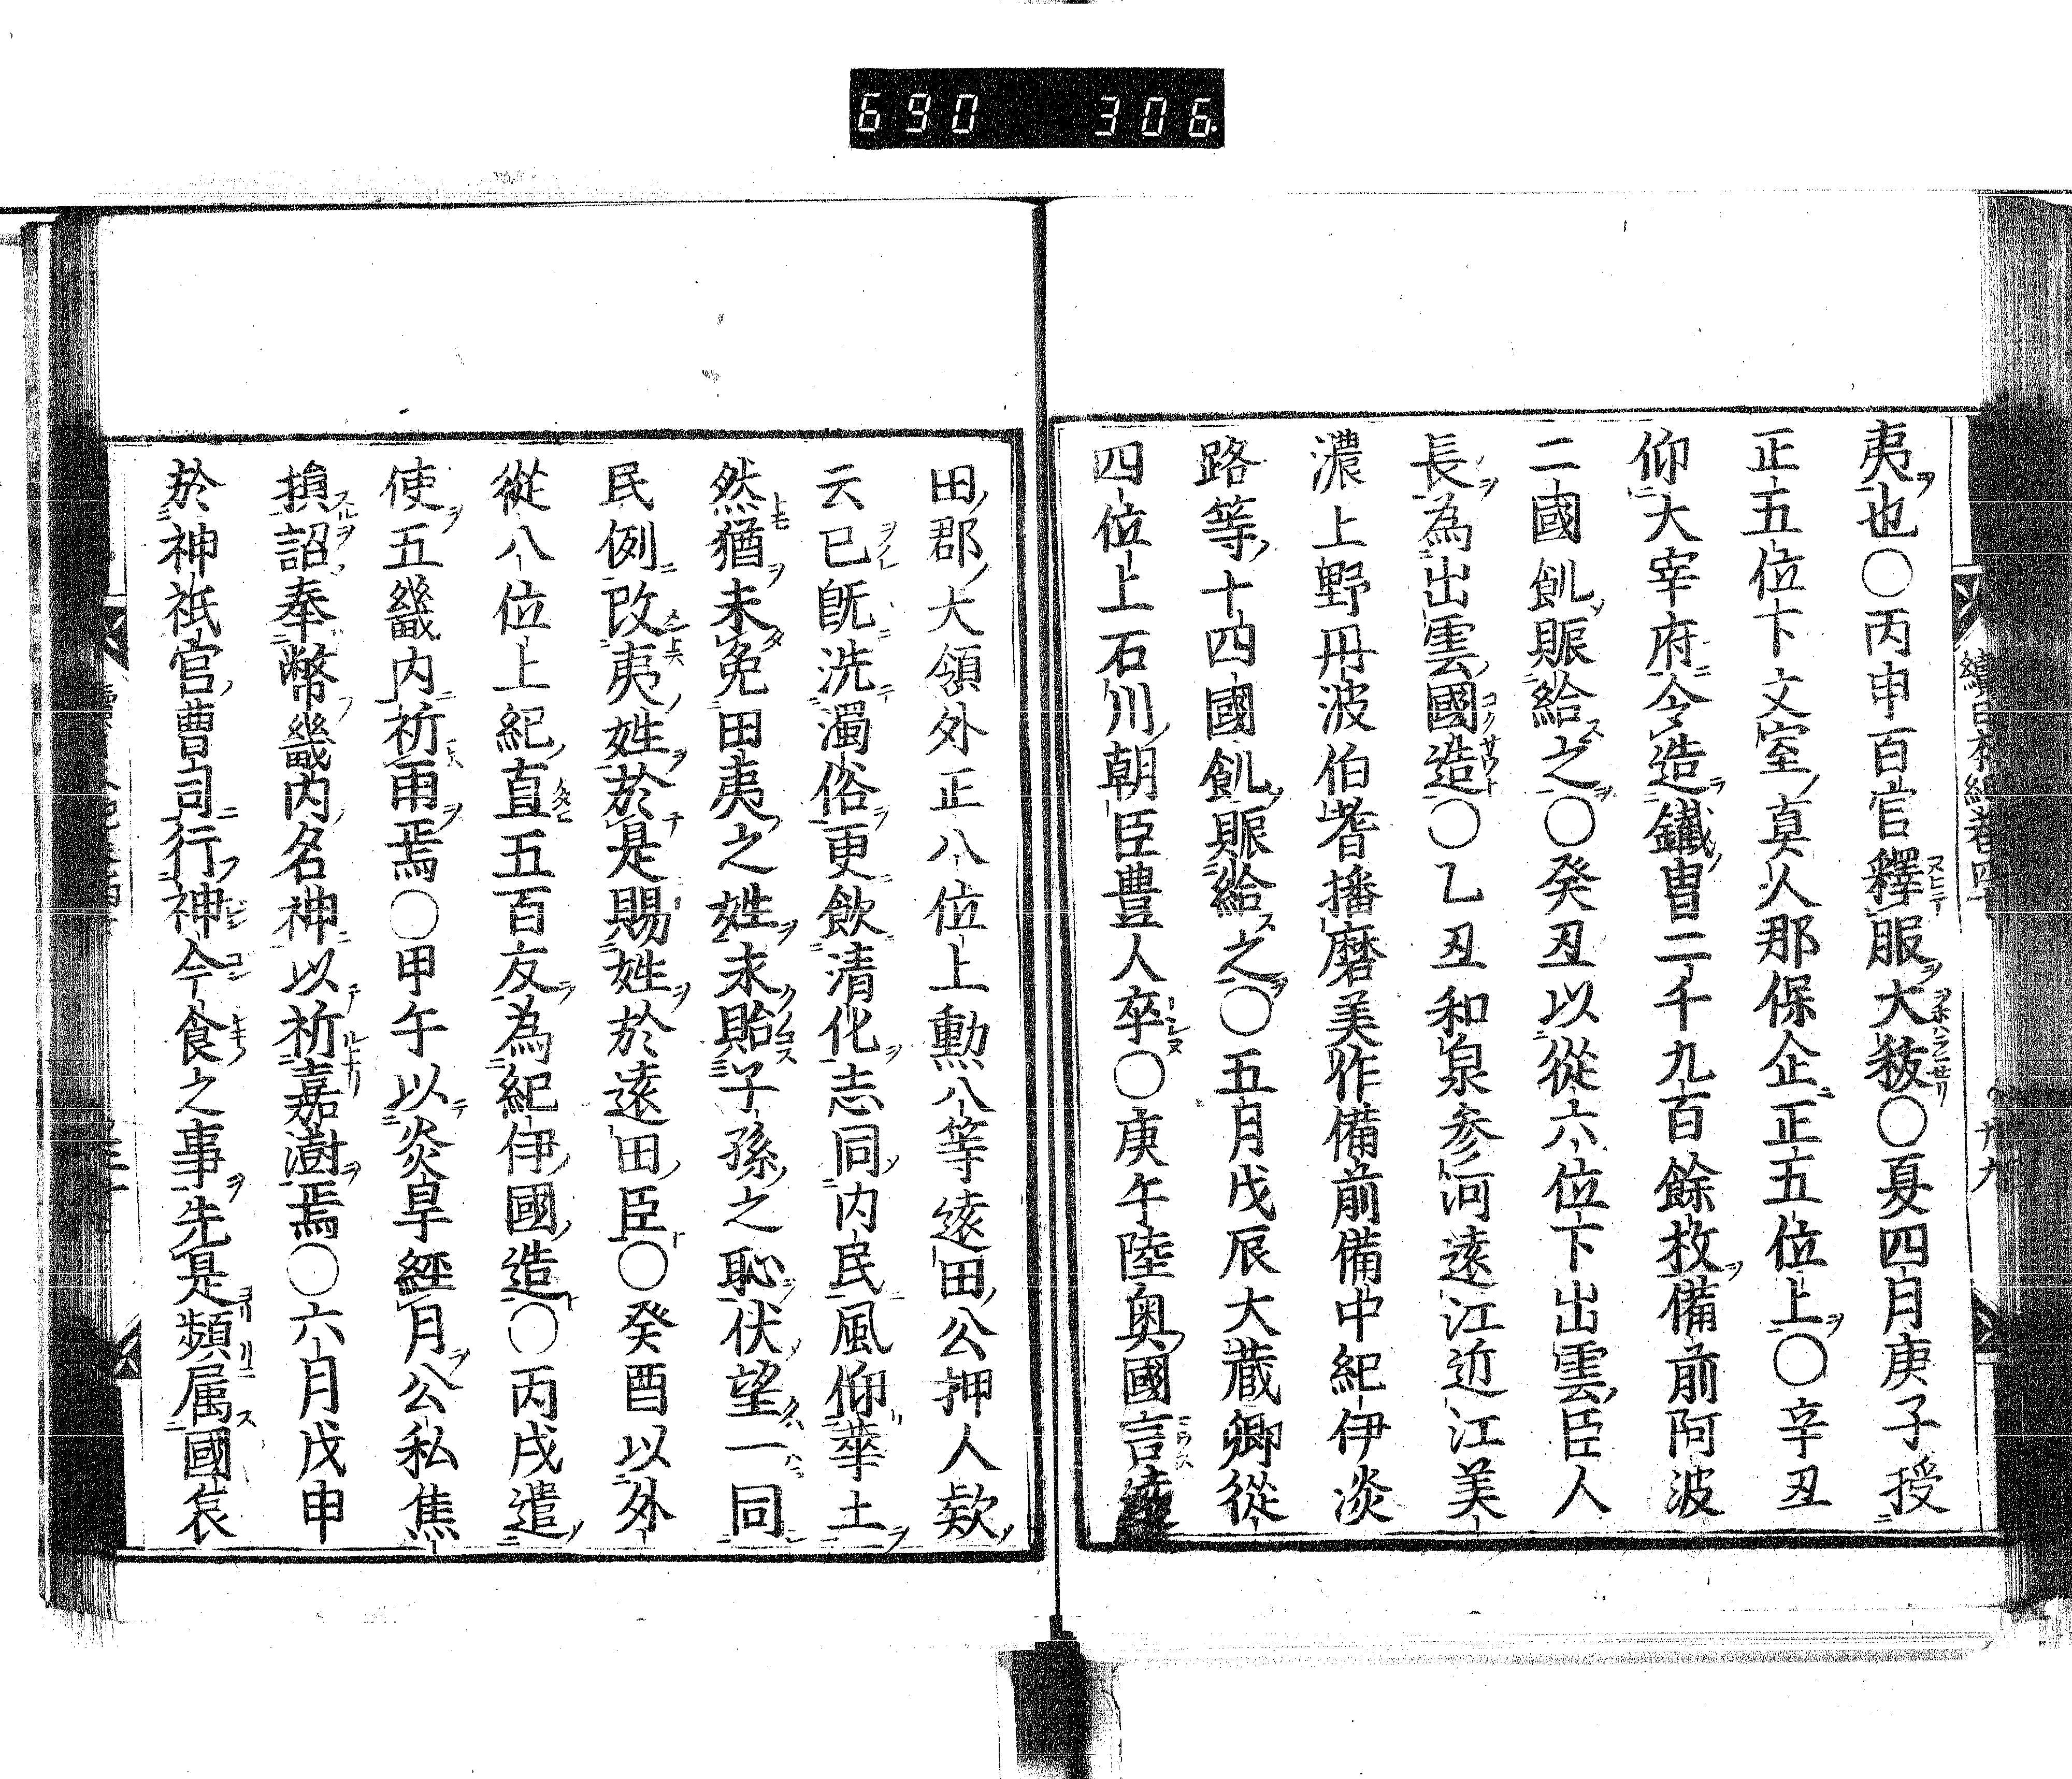 690 306
夷也〇丙申百官釋服大秡〇夏四月庚子授
正五位下文室真人那保企正五位上〇辛丑
仰大宰府令造鐵冑二千九百餘枚備前阿波
二國飢賑給之〇癸丑以從六位下出雲臣人
長為出雲國造〇乙丑和泉参河遠江近江美
濃上野丹波伯耆播磨美作備前備中紀伊淡
路等十四國飢賑給之〇五月戊辰大蔵卿從
四位上石川朝臣豊人卒〇庚午陸奥國言遠
田郡大領外正八位上勲八等遠田公押人欵
云己既洗濁俗更飲清化志同内民風仰華土
然猶未免田夷之姓永貽子孫之恥伏望一同
民例改夷姓於是賜姓於遠田臣〇癸酉以外
從八位上紀直五百友為紀伊國造〇丙戌遣
使五畿内祈雨焉〇甲午以炎旱經月公私焦
損詔奉幣畿内名神以祈嘉澍焉〇六月戊申
於神祇官曹司行神今食之事先是頻属國哀